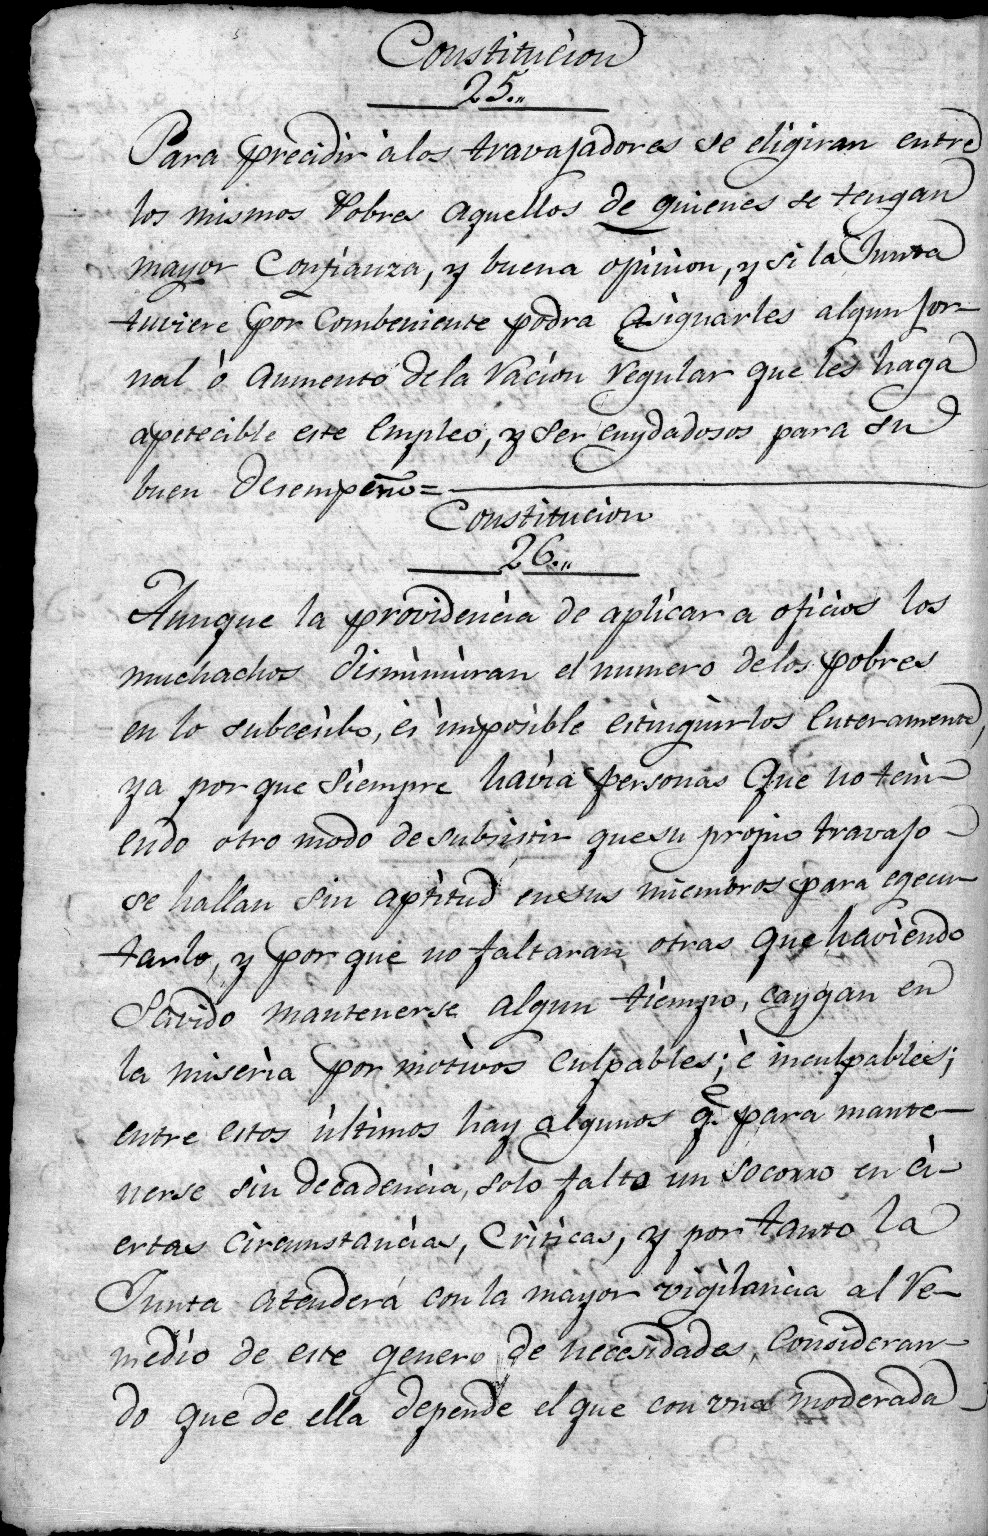 Constitucion
25.,,
Para precidir à los travajadores se eligiran entre
los mismos Pobres aquellos de quienes se tengan
mayor Confianza, y buena opinion, y si la Junta
tuviere por combeniente podra asignarles algun jor-
nal ò aumento de la racion regular que les haga
apetecible este empleo, y ser cuydadosos para su
buen desempeño=
Constitucion
26.,,
Aunque la providencia de aplicar a oficios los
muchachos disminuiran el numero de los pobres
en lo subcesibo, es imposible estinguirlos enteramente,
ya por que siempre havia personas que no teni-
endo otro modo de subsistir que su propio travajo
se hallan sin aptitud en sus miembros para egecu-
tarlo, y por que no faltaran otras que haviendo
savido mantenerse algun tiempo, caygan en
la miseria por motivos culpables; è inculpables;
entre estos ùltimos hay algunos q.e para mante-
nerse sin decadencia, solo falta un socorro en ci-
ertas circunstancias, Criticas, y por tanto la
Junta atenderá con la mayor vigilancia al re-
medio de este genero de necesidades, consideran-
do que de ella depende el que con una moderada